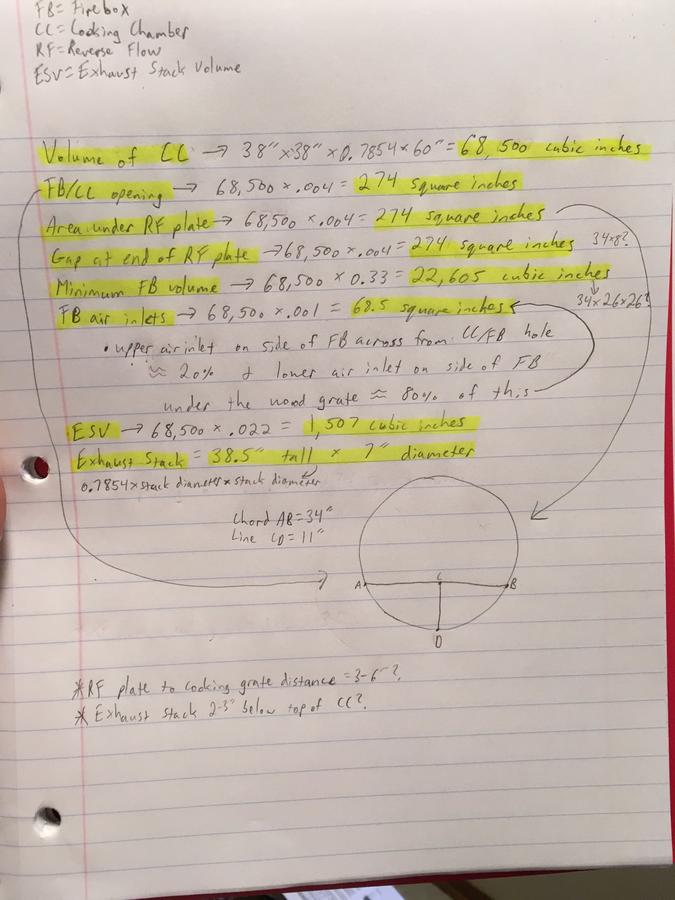 FB = Firebox
CC = Cooking Chamber
RF = Reverse Flow
ESV = Exhaust Stack Volume
Volume of CC → 38" x 38" x 0.7854 x 60" = 68,500 cubic inches
FB/CC opening → 68,500 x .004 = 274 square inches
Area under RF plate → 68,500 x .004 = 274 square inches
Gap at end of RF plate → 68,500 x .004 = 274 square inches 34x8?
Minimum FB volume → 68,500 x 0.33 = 22,605 cubic inches
FB air inlets → 68,500 x .001 = 68.5 square inches 34x26x26?
• upper air inlet on side of FB across from CC/FB hole
≈ 20% & lower air inlet on side of FB
under the wood grate ≈ 80% of this
ESV → 68,500 x .022 = 1,507 cubic inches
Exhaust Stack = 38.5" tall x 7" diameter
0.7854 x stack diameter x stack diameter
Chord AB = 34"
Line CD = 11"
A C B
D
* RF plate to cooking grate distance = 3-6"?
* Exhaust stack 2-3" below top of CC?